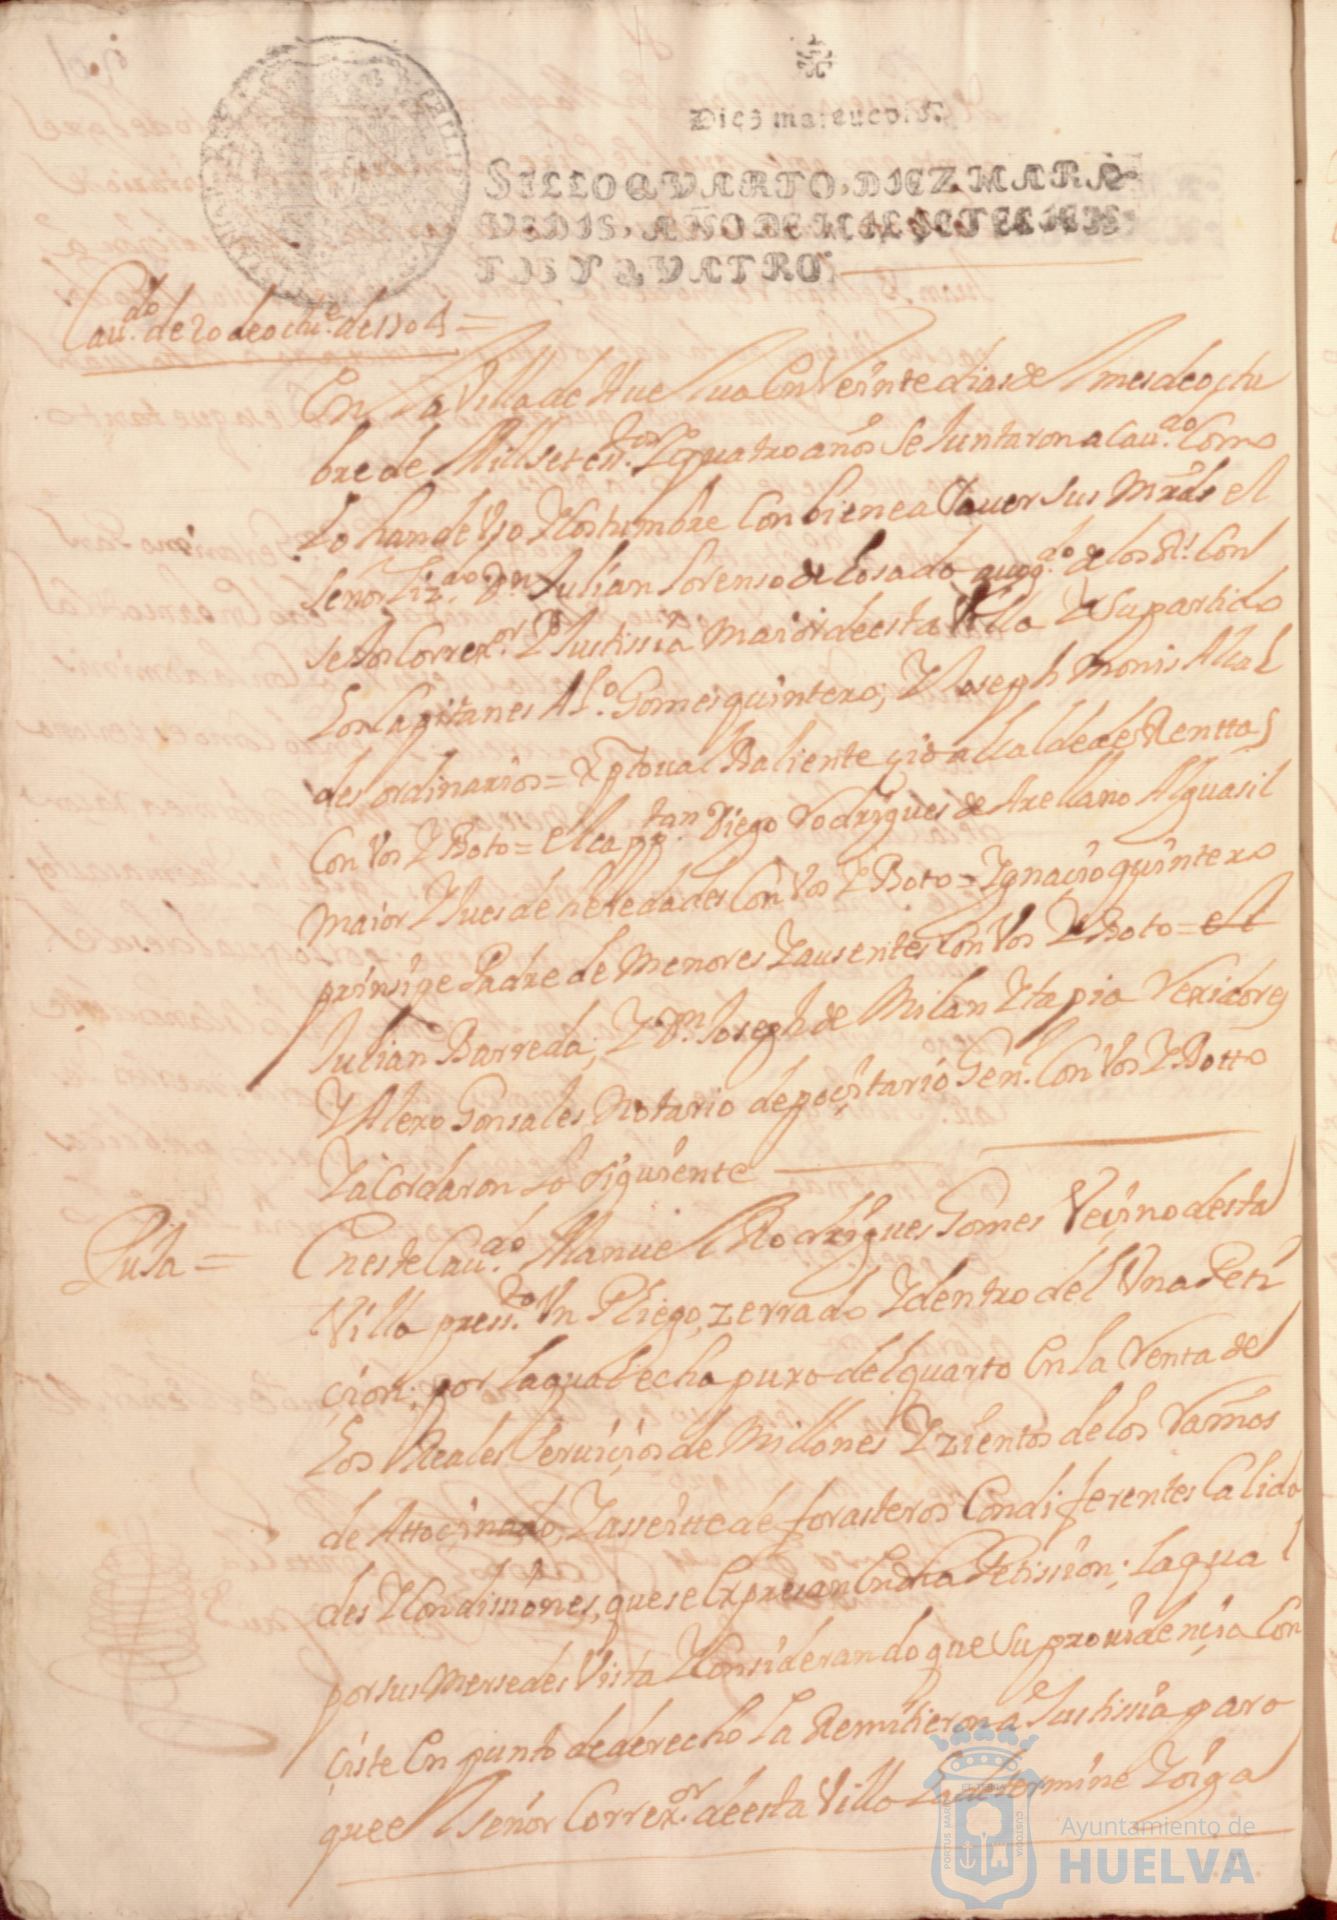 Diez marauedis.
SELLO QVARTO, DIEZ MARA-
VEDIS, AÑO DE MIL SETECIEN-
TOS Y QVATRO.
Cau.do de 20 de octu.e de 1704 =
En la Villa de Huelua En Veinte dias del mes de octu
bre de Mill seten.tos Y quatro años se Juntaron a Cau.do Como
lo han de Vso Y Costumbre Conbiene a Sauer Sus Mrds el
Señor Liz.do Dn Julian Lorenso de Losada auog.do de los Rs. Con
sejos Correx.or Y Justissia maior de esta Villa Y Su partido
Los Capitanes Al.o Gomes quintero, Y Joseph Monis Alcal
des ordinarios = Xptoual Baliente alcalde de Renttas
Con Vos Y Boto = el capp.tan Diego Rodrigues de Arellano Alguasil
maior Y Jues de heredades Con Vos Y Boto = Ygnacio quintero
prinsipe Padre de Menores Y ausentes Con Vos Y Boto =
Julian Barreda, Y Dn. Joseph de Milan Y tapia Rexidores
Y Alexo Gonsales Notario depoçitario Gen.l Con Vos Y Botto
Y acordaron lo siguiente
Puja =
En este Cau.do Manuel Rodrigues Gomes Veçino desta
Villa press.to Vn Pliego zerrado Y dentro del Vna Peti
çion; por la qual echa puxo del quarto En la Renta de
Los Reales Seruiçios de Millones Y zientos de los Ramos
de Attoçinado, Y asseitte de forasteros Con diferentes Calida
des Y Condissiones, que se Expresan En dha Petission; la qual
por sus Mersedes Vista Y Considerando que Su prouidençia Con
çiste En punto de derecho La Remitieron a Justissia para
que el señor Correx.or de esta Villa La determine Y oiga
Ayuntamiento de
HUELVA
PORTUS MARIS
ET TERRA
CUSTODIA